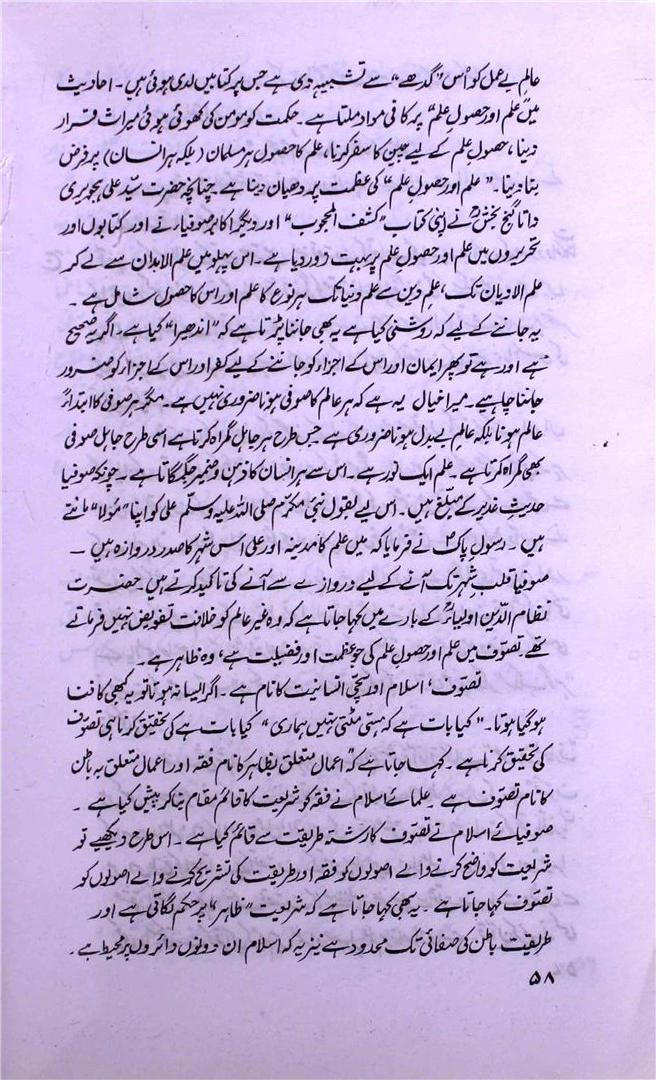 عالمِ بے عمل کو اُس "گدھے" سے تشبیہ دی ہے جس پر کتابیں لدی ہوئی ہیں۔ احادیث
میں علم اور حصولِ علم" پر کافی مواد ملتا ہے۔ حکمت کو مومن کی کھوئی ہوئی میراث قرار
دینا، حصولِ علم کے لیے چین کا سفر کرنا، علم کا حصول ہر مسلمان (بلکہ ہر انسان) پر فرض
بنا دینا۔ "علم اور حصولِ علم" کی عظمت پر دھیان دینا ہے چنانچہ حضرت سیّد علی ہجویری
داتا گنج بخشؒ نے اپنی کتاب "کشف المحجوب" اور دیگر اکابر صوفیاء نے اور کتابوں اور
تحریروں میں علم اور حصولِ علم پر بہت زور دیا ہے۔ اس پہلو میں علم الابدان سے لے کر
علم الادیان تک، علمِ دین سے علمِ دنیا تک ہر نوع کا علم اور اس کا حصول شامل ہے۔
یہ جاننے کے لیے کہ روشنی کیا ہے یہ بھی جاننا پڑتا ہے کہ "اندھیرا" کیا ہے۔ اگر یہ صحیح
ہے اور ہے تو پھر ایمان اور اس کے اجزاء کو جاننے کے لیے کفر اور اس کے اجزاء کو ضرور
جاننا چاہیے۔ میرا خیال یہ ہے کہ ہر عالم کا صوفی ہونا ضروری نہیں ہے۔ مگر ہر صوفی کا ابتداءً
عالم ہونا بلکہ عالمِ بے بدل ہونا ضروری ہے جس طرح ہر جاہل گمراہ کرتا ہے اسی طرح جاہل صوفی
بھی گمراہ کرتا ہے۔ علم ایک نور ہے۔ اس سے ہر انسان کا ذہن و ضمیر جگمگاتا ہے۔ چونکہ صوفیا
حدیثِ غدیر کے مبلّغ ہیں۔ اس لیے بقول نبیٔ مکرّم صلی اللہ علیہ وسلّم علی کو اپنا "مَولا" مانتے
ہیں۔ رسولِ پاکؐ نے فرمایا کہ میں علم کا مدینہ اور علی اس شہر کا صدر دروازہ ہیں۔
صوفیا قلبِ شہر تک آنے کے لیے دروازے سے آنے کی تاکید کرتے ہیں۔ حضرت
نظام الدّین اولیاءؒ کے بارے میں کہا جاتا ہے کہ وہ غیر عالم کو خلافت تفویض نہیں فرماتے
تھے۔ تصوّف میں علم اور حصولِ علم کی جو عظمت اور فضیلت ہے، وہ ظاہر ہے۔
تصوّف، اسلام اور سچّی انسانیت کا نام ہے۔ اگر ایسا نہ ہوتا تو یہ کبھی کا فنا
ہو گیا ہوتا۔ "کیا بات ہے کہ ہستی مٹتی نہیں ہماری" کیا بات ہے کی تحقیق کرنا ہی تصوّف
کی تحقیق کرنا ہے۔ کہا جاتا ہے کہ "اعمال متعلق بظاہر کا نام فقہ اور اعمال متعلق بہ باطن
کا نام تصوّف ہے۔ علمائے اسلام نے فقہ کو شریعت کا قائم مقام بنا کر پیش کیا ہے۔
صوفیائے اسلام نے تصوّف کا رشتہ طریقت سے قائم کیا ہے۔ اس طرح دیکھیے تو
شریعت کو واضح کرنے والے اصولوں کو فقہ اور طریقت کی تشریح کرنے والے اصولوں کو
تصوّف کہا جاتا ہے۔ یہ بھی کہا جاتا ہے کہ شریعت "ظاہر" پر حکم لگاتی ہے اور
طریقت باطن کی صفائی تک محدود ہے نیز یہ کہ اسلام ان دونوں دائروں پر محیط ہے۔
۵۸